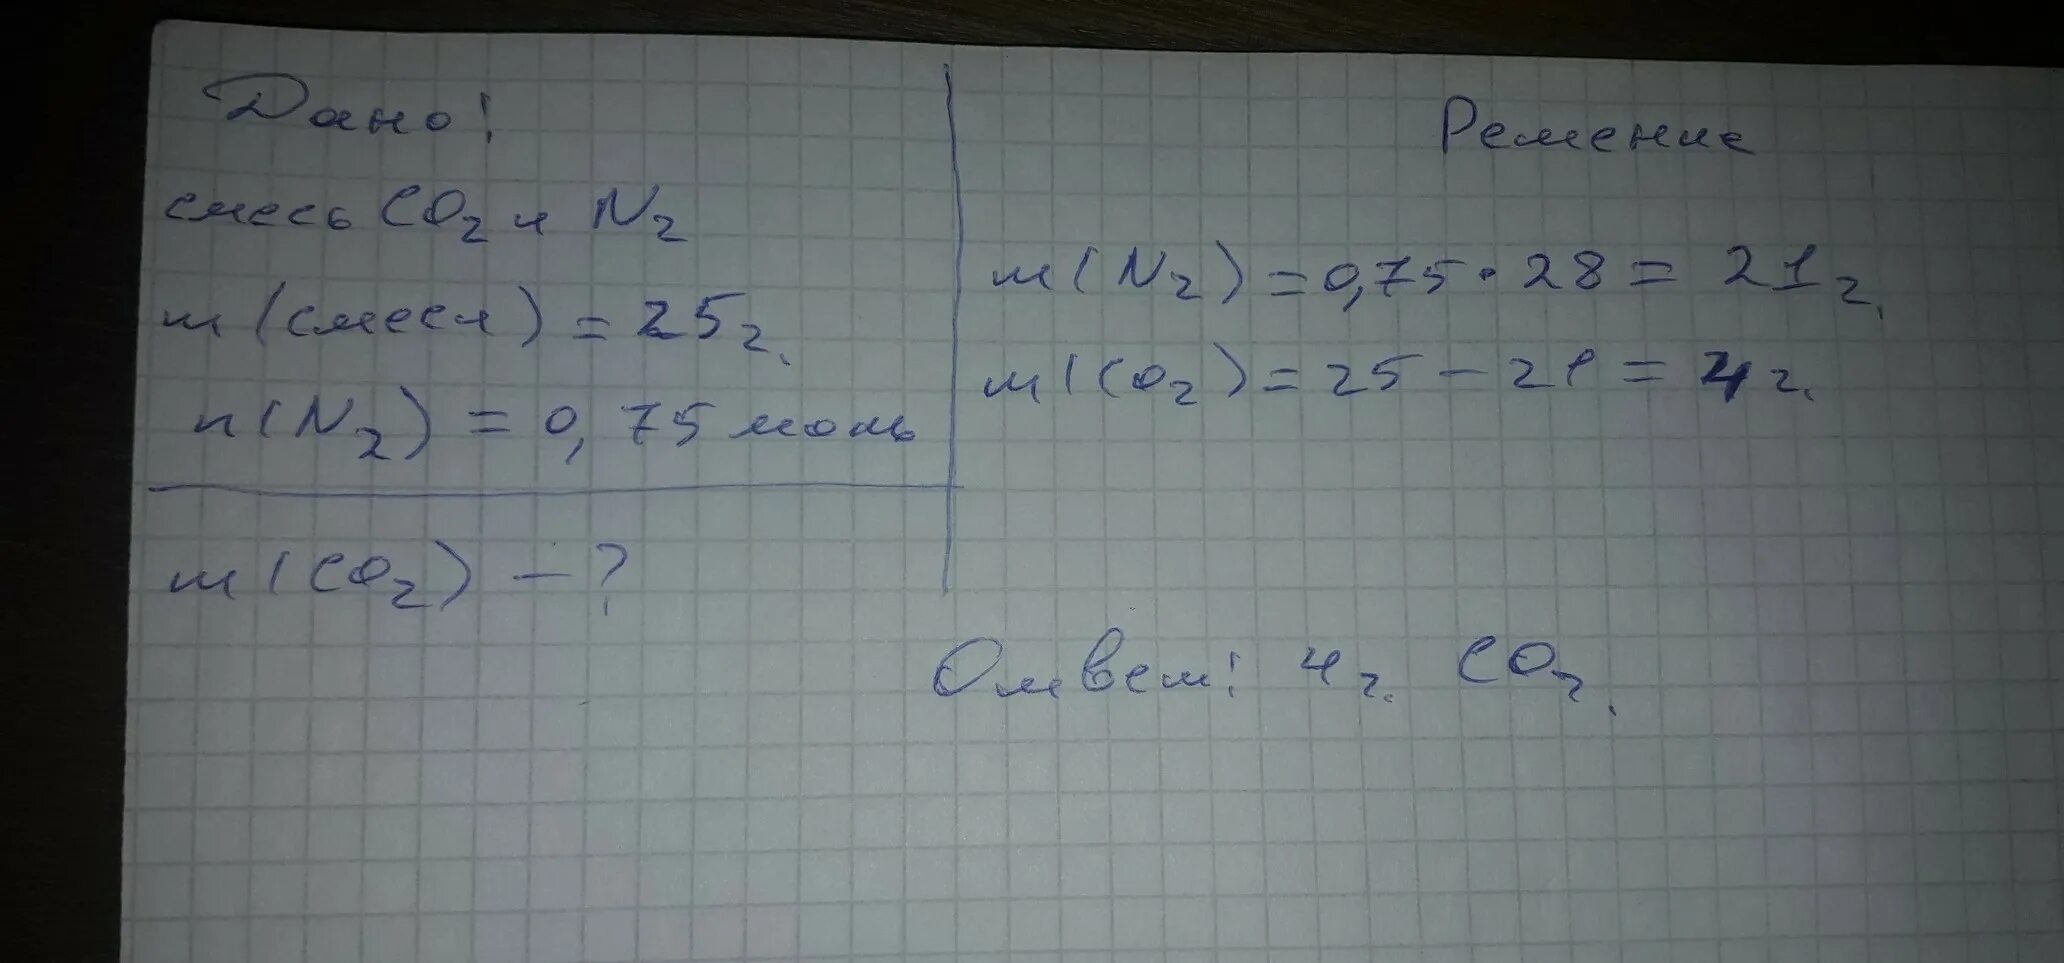 Дано:
смесь CO₂ и N₂
m(смеси) = 25 г.
n(N₂) = 0,75 моль
m(CO₂) – ?
Решение
m(N₂) = 0,75 · 28 = 21 г.
m(CO₂) = 25 – 21 = 4 г.
Ответ: 4 г. CO₂.